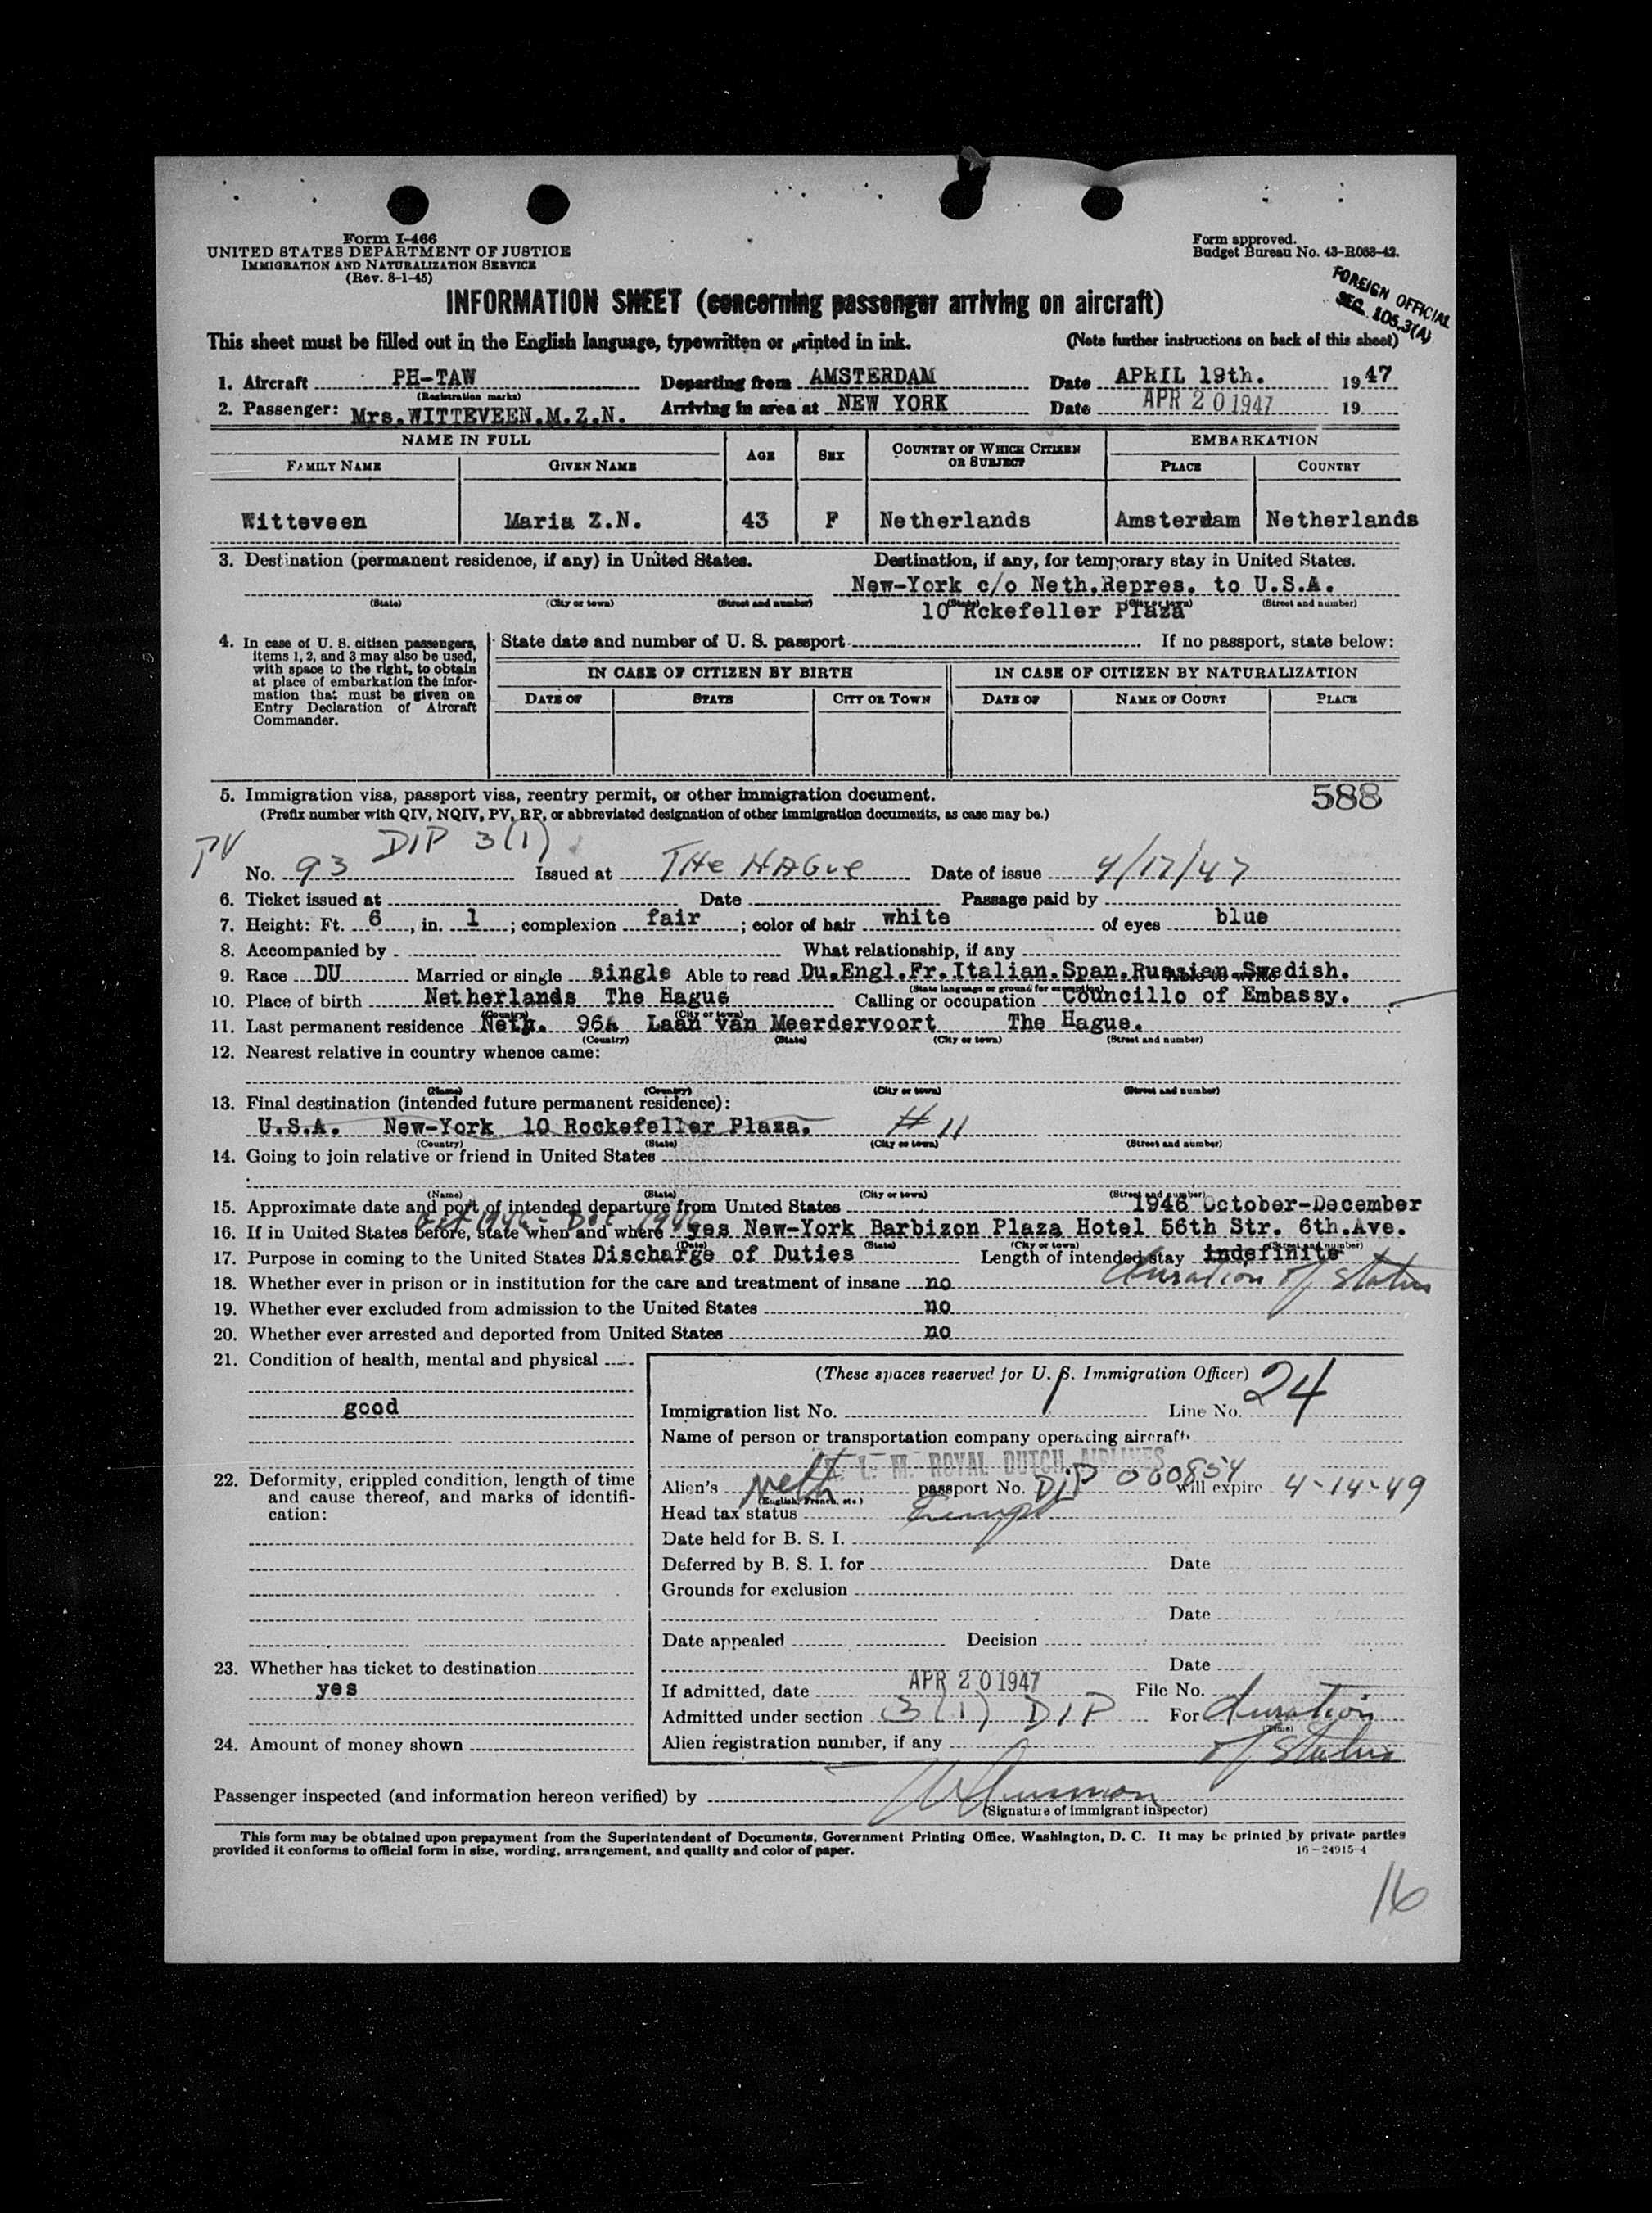 Form I-466
UNITED STATES DEPARTMENT OF JUSTICE
IMMIGRATION AND NATURALIZATION SERVICE
(Rev. 8-1-45)
Form approved.
Budget Bureau No. 43-R063-42.
FOREIGN OFFICIAL
SEC. 105.3(A)
INFORMATION SHEET (concerning passenger arriving on aircraft)
This sheet must be filled out in the English language, typewritten or printed in ink. (Note further instructions on back of this sheet)
1. Aircraft PH-TAW Departing from AMSTERDAM Date APRIL 19th. 1947
(Registration marks)
2. Passenger: Mrs.WITTEVEEN.M.Z.N. Arriving in area at NEW YORK Date APR 20 1947 19
NAME IN FULL AGE SEX COUNTRY OF WHICH CITIZEN OR SUBJECT EMBARKATION
FAMILY NAME GIVEN NAME PLACE COUNTRY
Witteveen Maria Z.N. 43 F Netherlands Amsterdam Netherlands
3. Destination (permanent residence, if any) in United States. Destination, if any, for temporary stay in United States.
New-York c/o Neth.Repres. to U.S.A.
(State) (City or town) (Street and number) (State) (City or town) (Street and number)
10 Rckefeller Plaza
4. In case of U. S. citizen passengers, items 1, 2, and 3 may also be used, with space to the right, to obtain at place of embarkation the information that must be given on Entry Declaration of Aircraft Commander.
State date and number of U. S. passport If no passport, state below:
IN CASE OF CITIZEN BY BIRTH IN CASE OF CITIZEN BY NATURALIZATION
DATE OF STATE CITY OR TOWN DATE OF NAME OF COURT PLACE
588
5. Immigration visa, passport visa, reentry permit, or other immigration document.
(Prefix number with QIV, NQIV, PV, RP, or abbreviated designation of other immigration documents, as case may be.)
PV DIP 3(1)
No. 93 Issued at THe HAGue Date of issue 4/17/47
6. Ticket issued at Date Passage paid by
7. Height: Ft. 6, in. 1; complexion fair; color of hair white of eyes blue
8. Accompanied by What relationship, if any
9. Race DU Married or single single Able to read Du.Engl.Fr.Italian.Span.Russian Swedish.
(State language or ground for exemption)
10. Place of birth Netherlands The Hague Calling or occupation Councillo of Embassy.
(Country) (City or town)
11. Last permanent residence Neth. 96A Laan van Meerdervoort The Hague.
(Country) (State) (City or town) (Street and number)
12. Nearest relative in country whence came:
(Name) (Country) (City or town) (Street and number)
13. Final destination (intended future permanent residence):
U.S.A. New-York 10 Rockefeller Plaza. # 11
(Country) (State) (City or town) (Street and number)
14. Going to join relative or friend in United States
(Name) (State) (City or town) (Street and number)
15. Approximate date and port of intended departure from United States 1946 October-December
Oct 1946 - Dec 1946
16. If in United States before, state when and where yes New-York Barbizon Plaza Hotel 56th Str. 6th.Ave.
(Date) (State) (City or town) (Street and number)
17. Purpose in coming to the United States Discharge of Duties Length of intended stay indefinite
duration of status
18. Whether ever in prison or in institution for the care and treatment of insane no
19. Whether ever excluded from admission to the United States no
20. Whether ever arrested and deported from United States no
21. Condition of health, mental and physical
good
22. Deformity, crippled condition, length of time and cause thereof, and marks of identification:
23. Whether has ticket to destination
yes
24. Amount of money shown
(These spaces reserved for U. S. Immigration Officer)
Immigration list No. Line No. 24
Name of person or transportation company operating aircraft
K. L. M. ROYAL DUTCH AIRLINES
Alien's Neth passport No. DiP 000854 will expire 4-14-49
(English, French, etc)
Head tax status Exempt
Date held for B. S. I.
Deferred by B. S. I. for Date
Grounds for exclusion
Date
Date appealed Decision
Date
If admitted, date APR 20 1947 File No.
Admitted under section 3(1) DIP For duration
(Time)
Alien registration number, if any of status
Passenger inspected (and information hereon verified) by
(Signature of immigrant inspector)
This form may be obtained upon prepayment from the Superintendent of Documents, Government Printing Office, Washington, D. C. It may be printed by private parties
provided it conforms to official form in size, wording, arrangement, and quality and color of paper. 16-24915-4
16